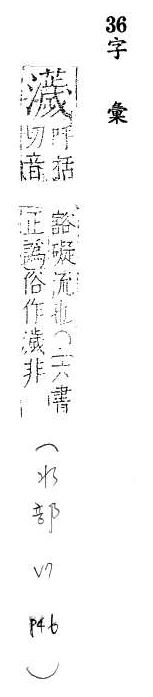 36字彙
呼括
切音
豁礙流也○六書
正譌俗作濊非
(水部 V7 P46)